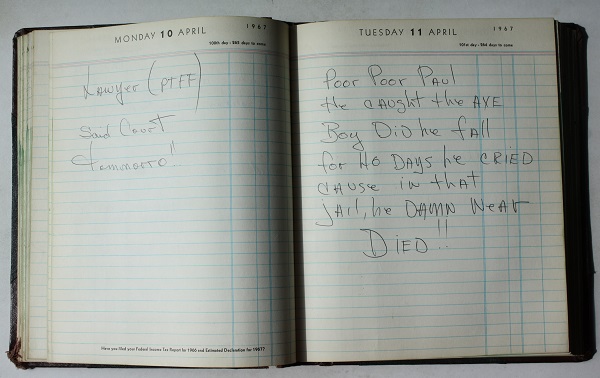 MONDAY 10 APRIL 1967
100th day - 265 days to come
Lawyer (PTFF)
Said Court
tommorro!!
Have you filed your Federal Income Tax Report for 1966 and Estimated Declaration for 1967?
TUESDAY 11 APRIL 1967
101st day - 264 days to come
Poor Poor Paul
He CAUGHT the AXE
Boy Did he fall
for 40 DAYS he CRIED
CAUSE in that
Jail, he DAMN Near
DIED!!